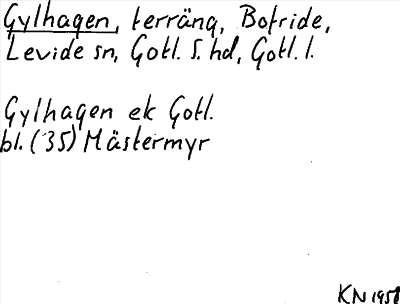 Gylhagen, terräng, Botride,
Levide sn, Gotl. S. hd, Gotl. l.
Gylhagen ek Gotl.
bl. (35) Mästermyr
KN 1958